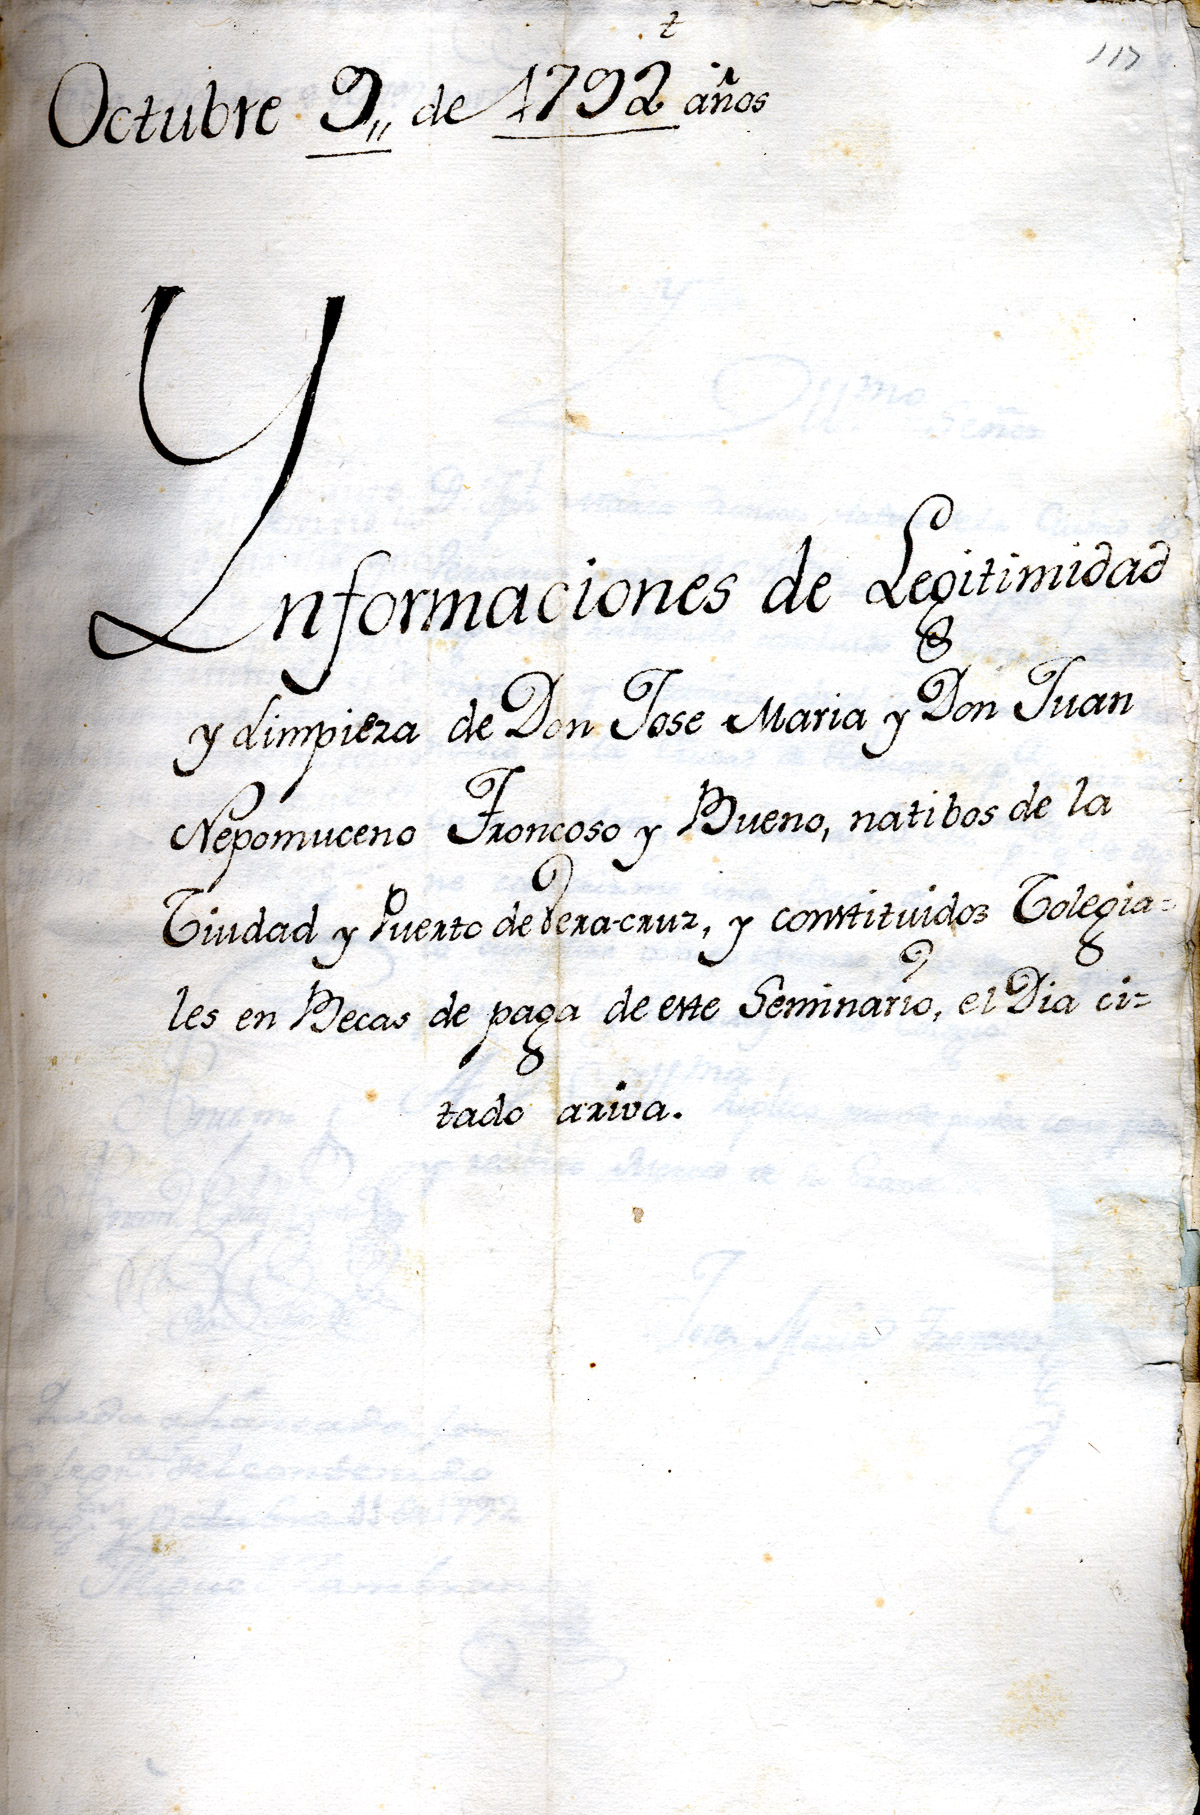 117
Octubre 9,, de 1792 años
Ynformaciones de Legitimidad
y Limpieza de Don Jose Maria y Don Juan
Nepomuceno Troncoso y Bueno, natibos de la
Ciudad y Puerto de Vera-cruz, y constituidos Colegia=
les en Becas de paga de este Seminario, el Dia ci=
tado ariva.